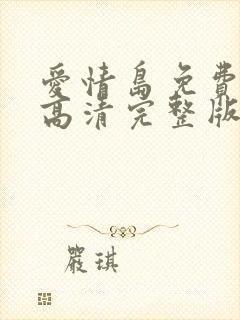 愛情島免費
高清完整版
嚴琪